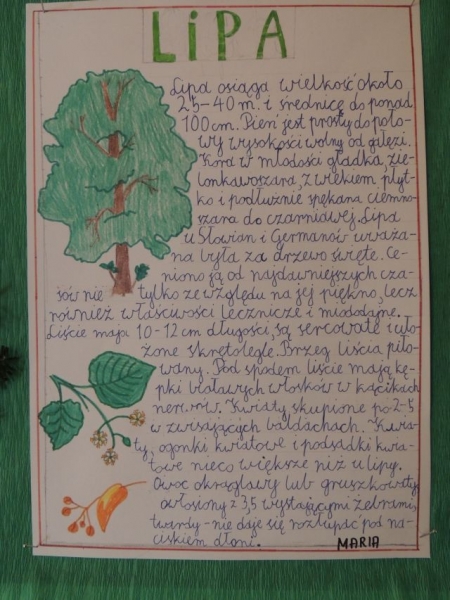 LIPA
Lipa osiąga wielkość około
25-40 m. i średnicę do ponad
100 cm. Pień jest prosty do poło-
wy wysokości wolny od gałęzi.
Kora w młodości gładka zie-
lonkawoszara, z wiekiem płyt-
ko i podłużnie spękana ciemno-
szara do czarniawej. Lipa
u Słowian i Germanów uważa-
na była za drzewo święte. Ce-
niono ją od najdawniejszych cza-
sów nie tylko ze względu na jej piękno, lecz
również właściwości lecznicze i miododajne.
Liście mają 10-12 cm długości, są sercowate i uło-
żone skrętolegle. Brzeg liścia piło-
wany. Pod spodem liście mają kę-
pki białawych włosków w kącikach
nerwów. Kwiaty skupione po 2-5
w zwisających baldachach. Kwia-
ty, ogonki kwiatowe i podsadki kwia-
towe nieco większe niż u lipy.
Owoc okrągławy lub gruszkowaty
owłosiony z 3,5 wystającymi żebrami,
twardy - nie daje się rozłupać pod na-
ciskiem dłoni.
MARIA